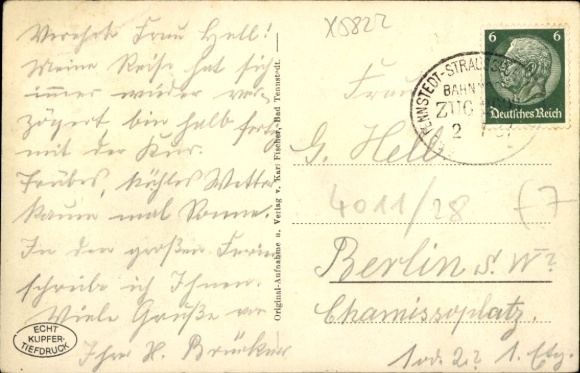 Verehrte Frau Hell!
Meine Reise hat sich
immer wieder ver-
zögert bin halb fertig
mit der Kur.
Trübes, kühles Wetter
kaum mal Sonne.
In den großen Ferien
schreibe ich Ihnen.
Viele Grüße von
Ihrer H. Brückner
ECHT
KUPFER-
TIEFDRUCK
Original-Aufnahme u. Verlag v. Karl Fischer, Bad Tennstedt.
X5822
6 6
Deutsches Reich
TENNSTEDT-STRAUSSF
BAHNP
ZUG
2
Frau
G. Hell
4011/28 (7
Berlin S. W?
Chamissoplatz.
1 od. 2? 1. Etg.